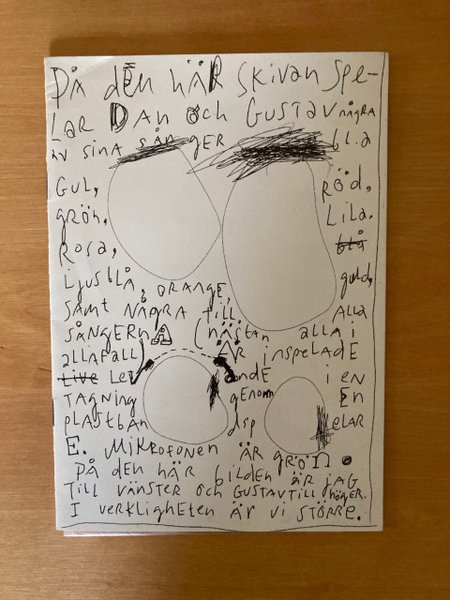 PÅ DEN HÄR SKIVAN SPE-
LAR DAN OCH GUSTAV NÅGRA
AV SINA SÅNGER BL.A
GUL, RÖD,
GRÖN, LILA.
ROSA, BLÅ
LJUSBLÅ, ORANGE, GULD,
SAMT NÅGRA TILL. ALLA
SÅNGERNA (NÄSTAN ALLA I
ALLAFALL) ÄR INSPELADE
LIVE LE ANDE I EN
TAGNING GENOM EN
PLASTBAN DSP ELAR
E. MIKROFONEN ÄR GRÖN.
PÅ DEN HÄR BILDEN ÄR JAG
TILL VÄNSTER OCH GUSTAV TILL HÖGER.
I VERKLIGHETEN ÄR VI STÖRRE.